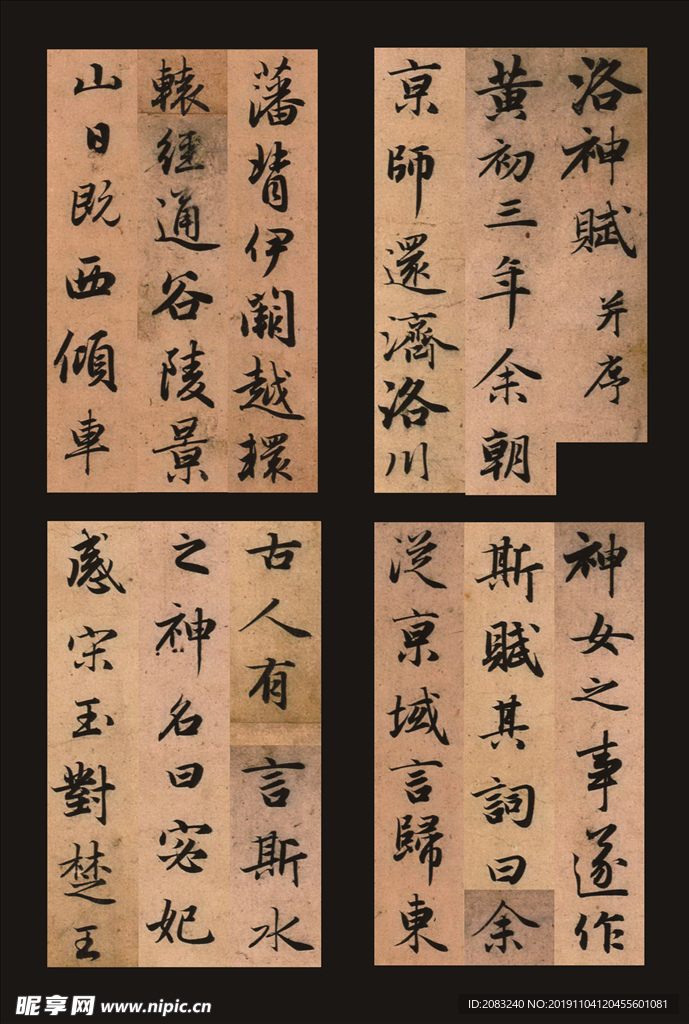 洛神賦 并序
黄初三年余朝
亰師還濟洛川
古人有言斯水
之神名曰宓妃
感宋玉對楚王
神女之事遂作
斯賦其詞曰余
從亰域言歸東
藩背伊闕越轘
轅經通谷陵景
山日既西傾車
昵享网 www.nipic.cn
ID:2083240 NO:20191104120455601081